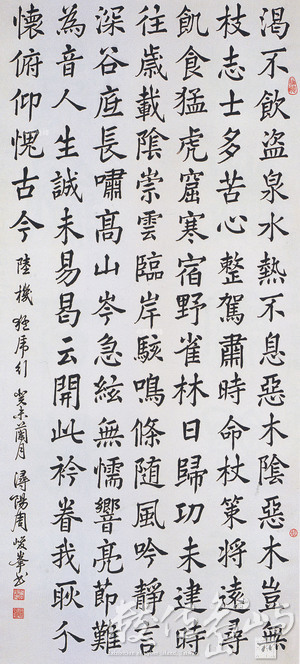 渴不飲盜泉水熱不息惡木陰惡木豈無
杖志士多苦心整駕肅時命杖策將遠尋
飢食猛虎窟寒宿野雀林日歸功未建時
往歲載陰崇雲臨岸駭鳴條随風吟靜言
深谷底長嘯髙山岑急絃無懦響亮節難
為音人生誠未易曷云開此衿眷我耿介
懷俯仰愧古今 陸機猛虎行 癸未蘭月 潯陽周